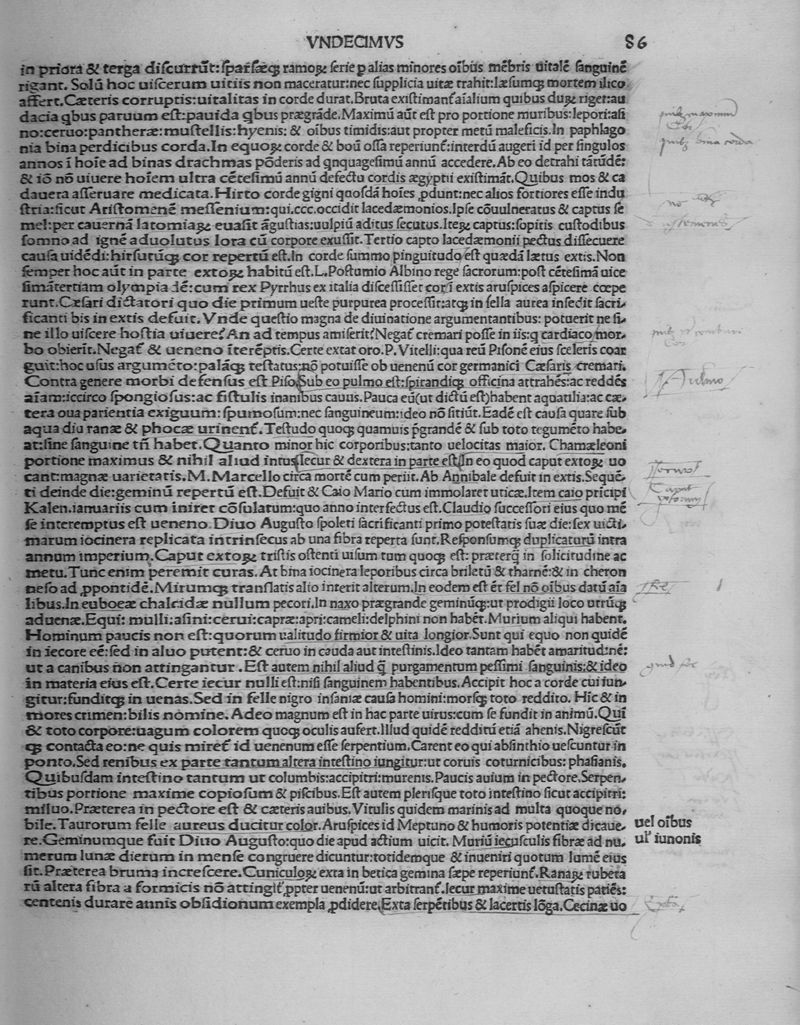 VNDECIMVS 86
in priora & terga diſcurrūt: ſparſæq; ramoꝝ ſerie ꝑ alias minores oībus mēbris uitalē ſanguinē
rigant. Solū hoc uiſcerum uitiis non maceratur:nec ſupplicia uitæ trahit:Læſumq; mortem ilico
affert.Cæteris corruptis:uitalitas in corde durat.Bruta exiſtimant̃ aīalium quibus duꝝ riget:au
dacia qbus paruum eſt:pauida qbus prægrāde.Maximū aūt eſt pro portione muribus:lepori:aſi
no:ceruo:pantheræ:muſtellis:hyenis: & oībus timidis:aut propter metū maleficis.In paphlago
nia bina perdicibus corda.In equoꝝ corde & boū oſſa reperiunt̃:interdū augeri id per ſingulos
annos ī hoīe ad binas drachmas pōderis ad qnquageſimū annū accedere.Ab eo detrahi tātūdē:
& iō nō uiuere hoīem ultra cēteſimū annū defectu cordis ægyptii exiſtimāt.Quibus mos & ca
dauera aſſeruare medicata.Hirto corde gigni quoſdā hoīes ꝓdunt:nec alios fortiores eſſe indu
ſtria:ſicut Ariſtomenē meſſenium:qui.ccc.occidit lacedæmonios.Ipſe cōuulneratus & captus ſe
mel:per cauernā latomiaꝝ euaſit āguſtias:uulpiū aditus ſecutus.Iteꝝ captus:ſopitis cuſtodibus
ſomno ad ignē aduolutus lora cū corpore exuſſit.Tertio capto lacedæmonii pectus diſſecuere
cauſa uidēdi:hirſutūq; cor repertū eſt.In corde ſummo pinguitudo eſt quædā lætus extis.Non
ſemper hoc aūt in parte extoꝝ habitū eſt.L.Poſtumio Albino rege ſacrorum:poſt cēteſimā uice
ſimātertiam olympiadē:cum rex Pyrrhus ex italia diſceſſiſſet cor ī extis aruſpices aſpicere cœpe
runt.Cæſari dictatori quo die primum ueſte purpurea proceſſit:atq; in ſella aurea inſedit ſacri⸗
ficanti bis in extis defuit. Vnde queſtio magna de diuinatione argumentantibus: potuerit ne ſi⸗
ne illo uiſcere hoſtia uiuere? An ad tempus amiſerit? Negat̃ cremari poſſe in iis:q cardiaco mor⸗
bo obierīt.Negat̃ & ueneno īterēptis.Certe extat oro.P.Vitelli:qua reū Piſonē eius ſceleris coar
guit:hoc uſus argumēto:palāq; teſtatus:nō potuiſſe ob uenenū cor germanici Cæſaris cremari.
Contra genere morbi defenſus eſt Piſo.Sub eo pulmo eſt:ſpirandiq; officina attrahēs:ac reddēs
aīam:iccirco ſpongioſus:ac fiſtulis inanibus cauus.Pauca eū(ut dictū eſt)habent aquatilia:ac cæ⸗
tera oua parientia exiguum: ſpumoſum:nec ſanguineum:ideo nō ſitiūt.Eadē eſt cauſa quare ſub
aqua diu ranæ & phocæ urinent̃.Teſtudo quoq; quamuis p̄grandē & ſub toto tegumēto habe⸗
at:ſine ſanguine tn̄ habet.Quanto minor hic corporibus:tanto uelocitas maior. Chamæleoni
portione maximus & nihil aliud intus.Iecur & dextera in parte eſt.In eo quod caput extoꝝ uo
cant:magnæ uarietatis.M.Marcello circa mortē cum periit.Ab Annibale defuit in extis.Sequē⸗
ti deinde die:geminū repertū eſt.Defuit & Caio Mario cum immolaret uticæ.Item caio prīcipi
Kalen.ianuariis cum iniret cōſulatum:quo anno interfectus eſt.Claudio ſucceſſori eius quo mē
ſe interemptus eſt ueneno. Diuo Auguſto ſpoleti ſacrificanti primo poteſtatis ſuæ die:ſex uicti⸗
marum iocinera replicata intrinſecus ab una fibra reperta ſunt.Reſponſumq; duplicaturū intra
annum imperium.Caput extoꝝ triſtis oſtenti uiſum tum quoq; eſt: præterq̃ in ſolicitudine ac
metu.Tunc enim peremit curas. At bina iocinera leporibus circa briletū & tharnē:& in cheron
neſo ad ꝓpontidē.Mirumq; tranſlatis alio interit alterum.In eodem eſt ēt fel nō oībus datū aīa
libus.In eubœæ chalcidæ nullum pecori.In naxo prægrande geminūq;:ut prodigii loco utrūq;
aduenæ.Equi: mulli:aſini:cerui:capræ:apri:cameli:delphini non habēt.Murium aliqui habent.
Hominum paucis non eſt:quorum ualitudo firmior & uita longior.Sunt qui equio non quidē
in iecore eē:ſed in aluo putent:& ceruo in cauda aut inteſtinis.Ideo tantam habēt amaritud:nē:
ut a canibus non attingantur . Eſt autem nihil aliud q̃ purgamentum peſſimi ſanguinis:& ideo
in materia eius eſt.Certe iecur nulli eſt:niſi ſanguinem habentibus.Accipit hoc a corde cui iun⸗
gitur:funditq; in uenas.Sed in felle nigro inſaniæ cauſa homini:morſq; toto reddito. Hic & in
mores crimen:bilis nomine. Adeo magnum eſt in hac parte uirus:cum ſe fundit in animū.Qui
& toto corpore:uagum colorem quoq; oculis aufert.Illud quidē redditū etiā ahenis.Nigreſcūt
q; contacta eo:ne quis miret̃ id uenenum eſſe ſerpentium.Carent eo qui abſinthio ueſcuntur in
ponto.Sed renibus ex parte tantum altera inteſtino iungitur:ut coruis coturnicibus: phaſianis.
Quibuſdam inteſtino tantum ut columbis:accipitri:murenis.Paucis auium in pectore.Serpen⸗
tibus portione maxime copioſum & piſcibus.Eſt autem pleriſque toto inteſtino ſicut accipitri:
miluo.Præterea in pectore eſt & cæteris auibus.Vitulis quidem marinis ad multa quoque no⸗
bile.Taurorum felle aureus ducitur color.Aruſpices id Neptuno & humoris potentiæ dicaue⸗
re.Geminumque fuit Diuo Auguſto:quo die apud actium uicit. Muriū iecuſculis fibræ ad nu⸗
merum lunæ dierum in menſe congruere dicuntur:totidemque & inueniri quotum lumē eius
ſit.Præterea bruma increſcere.Cuniculoꝝ exta in betica gemina ſæpe reperiunt̃.Ranaꝝ rubeta
rū altera fibra a formicis nō attingit̃ ꝓpter uenenū:ut arbitrant̃.Iecur maxime uetuſtatis patiēs:
centenis durare annis obſidionum exempla ꝓdidere.Exta ſerpētibus & lacertis lōga.Cecinæ uo
uel oībus
ul' iunonis